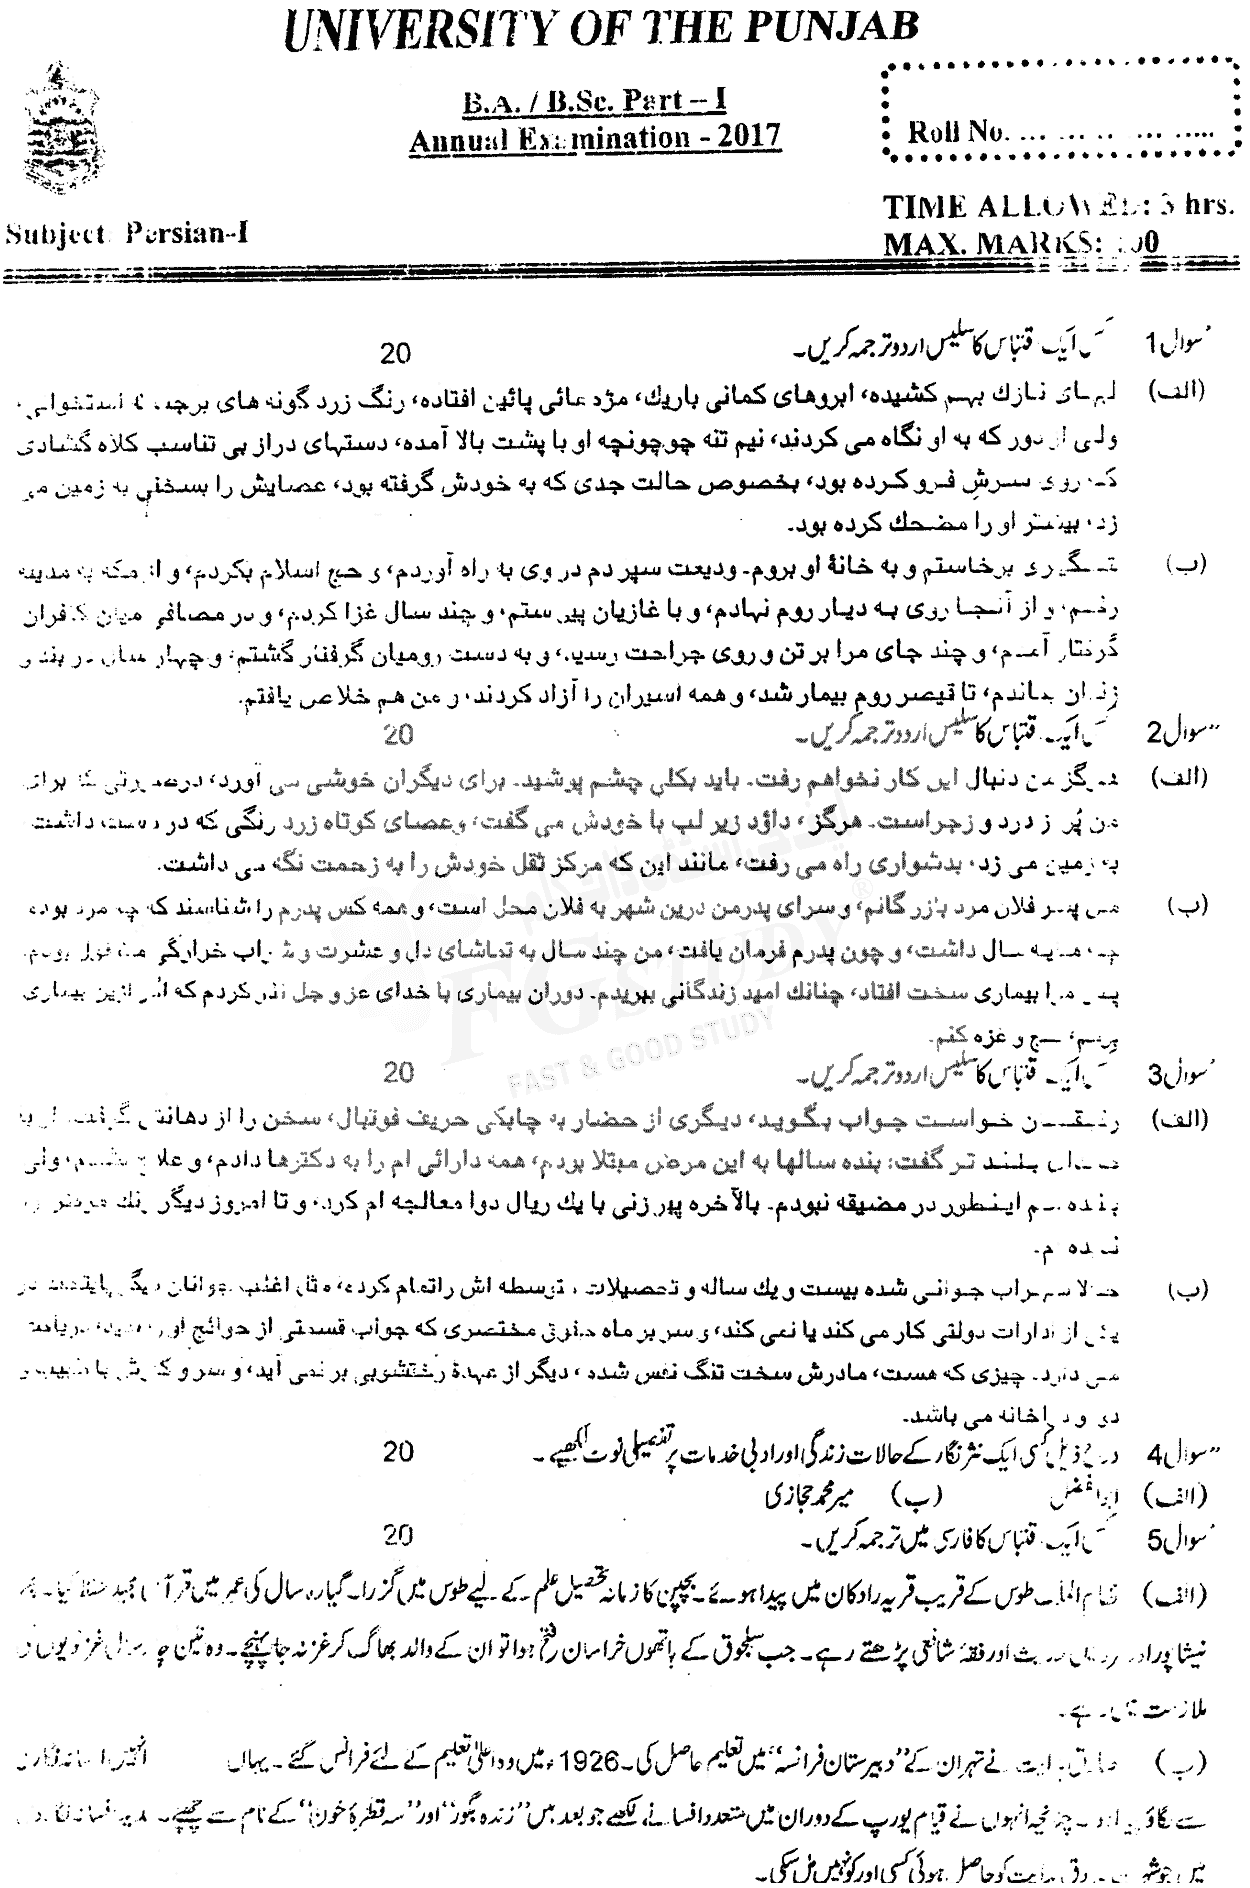 UNIVERSITY OF THE PUNJAB
B.A. / B.Sc. Part – I
Annual Examination - 2017
Roll No. ... ... .. . ... .....
TIME ALLOWED: 3 hrs.
MAX. MARKS: 100
Subject: Persian-I
سوال 1 ایک اقتباس کا سلیس اردو ترجمہ کریں۔ 20
(الف) لبهای نازك بهم کشیده، ابروهای کمانی باریك، مژه هائی پائین افتاده، رنگ زرد گونه های برجسته استخوانی،
ولی از دور که به او نگاه می کردند، نیم تنه چوچونچه او با پشت بالا آمده، دستهای دراز بی تناسب کلاه گشادی
که روی سرش فرو کرده بود، بخصوص حالت جدی که به خودش گرفته بود، عصایش را بسختی به زمین می
زد، بیشتر او را مضحك کرده بود۔
(ب) برخاستم و به خانهٔ او بروم۔ ودیعت سپردم در وی به راه آوردم، و حج اسلام بکردم، و از مکه به مدینه
رفتم، و از آنجا روی به دیار روم نهادم، و با غازیان پیوستم، و چند سال غزا کردم، و در مصافی میان کافران
گرفتار آمدم، و چند جای مرا بر تن و روی جراحت رسید، و به دست رومیان گرفتار گشتم، و چهار سال در بند و
زندان بماندم، تا قیصر روم بیمار شد، و همه اسیران را آزاد کردند، و من هم خلاص یافتم.
سوال 2 ایک اقتباس کا سلیس اردو ترجمہ کریں۔ 20
(الف) هرگز من دنبال این کار نخواهم رفت۔ باید بکلی چشم پوشید۔ برای دیگران خوشی می آورد، درصورتی که برای
من پُر از درد و زجر است۔ هرگز، داؤد زیر لب با خودش می گفت، و عصای کوتاه زرد رنگی که در دست داشت
به زمین می زد، بدشواری راه می رفت، مانند این که مرکز ثقل خودش را به زحمت نگه می داشت۔
(ب) من پسر فلان مرد بازرگانم، و سرای پدرمن درین شهر به فلان محل است، و همه کس پدرم را شناسند که چه مرد بوده
چه مایه سال داشت، و چون پدرم فرمان یافت، من چند سال به تماشای دل و عشرت و شراب خوارگی مشغول بودم۔
پس مرا بیماری سخت افتاد، چنانك امید زندگانی ببریدم۔ دوران بیماری با خدای عزوجل نذر کردم که اگر ازین بیماری
برهم، حج و غزه کنم۔
سوال 3 ایک اقتباس کا سلیس اردو ترجمہ کریں۔ 20
(الف) خواست جواب بگوید، دیگری از حضار به چابکی حریف فوتبال، سخن را از دهانش گرفت، و با
صدای بلند تر گفت: بنده سالها به این مرض مبتلا بودم، همه دارائی ام را به دکترها دادم، و علاج نشدم، ولی
بنده هم اینطور در مضیقه نبودم۔ بالآخره پیرزنی با یك ریال دوا معالجه ام کرد، و تا امروز دیگر رنگ مرض را
ندیده ام۔
(ب) حالا سهراب جوانی شده بیست و یك ساله و تحصیلات متوسطه اش را تمام کرده، مثل اغلب جوانان دیگر پایتخت در
یکی از ادارات دولتی کار می کند یا نمی کند، و سر بر ماه حقوق مختصری که جواب قسمتی از حوائج او را دهد، دریافت
می دارد۔ چیزی که هست، مادرش سخت تنگ نفس شده، دیگر از عهدهٔ رختشویی بر نمی آید، و سر و کارش با طبیب و
دوا و دواخانه می باشد۔
سوال 4 درج ذیل کسی ایک نثر نگار کے حالات زندگی اور ادبی خدمات پر تفصیلی نوٹ لکھیے۔ 20
(الف) ابوالفضل (ب) میر محمد حجازی
سوال 5 ایک اقتباس کا فارسی میں ترجمہ کریں۔ 20
(الف) نظام الملک طوس کے قریب قریہ رادکان میں پیدا ہوئے۔ بچپن کا زمانہ تحصیل علم کے لیے طوس میں گزرا۔ گیارہ سال کی عمر میں قرآن مجید حفظ کیا۔ پھر
نیشاپور اور حدیث اور فقۂ شافعی پڑھتے رہے۔ جب سلجوق کے ہاتھوں خراسان فتح ہوا تو ان کے والد بھاگ کر غزنہ جا پہنچے۔ وہ تین چار سال غزنویوں کی
ملازمت میں رہے۔
(ب) صادق ہدایت نے تہران کے "دبیرستان فرانسہ" میں تعلیم حاصل کی۔ 1926ء میں وہ اعلیٰ تعلیم کے لئے فرانس گئے۔ یہاں انہیں افسانہ نگاری
سے لگاؤ پیدا ہوا۔ چنانچہ انہوں نے قیام یورپ کے دوران میں متعدد افسانے لکھے جو بعد میں "زندہ بگور" اور "سہ قطرۂ خون" کے نام سے چھپے۔ جدید افسانہ نگاروں
میں جو شہرت صادق ہدایت کو حاصل ہوئی کسی اور کو نہیں مل سکی۔
FG STUDY
FAST & GOOD STUDY